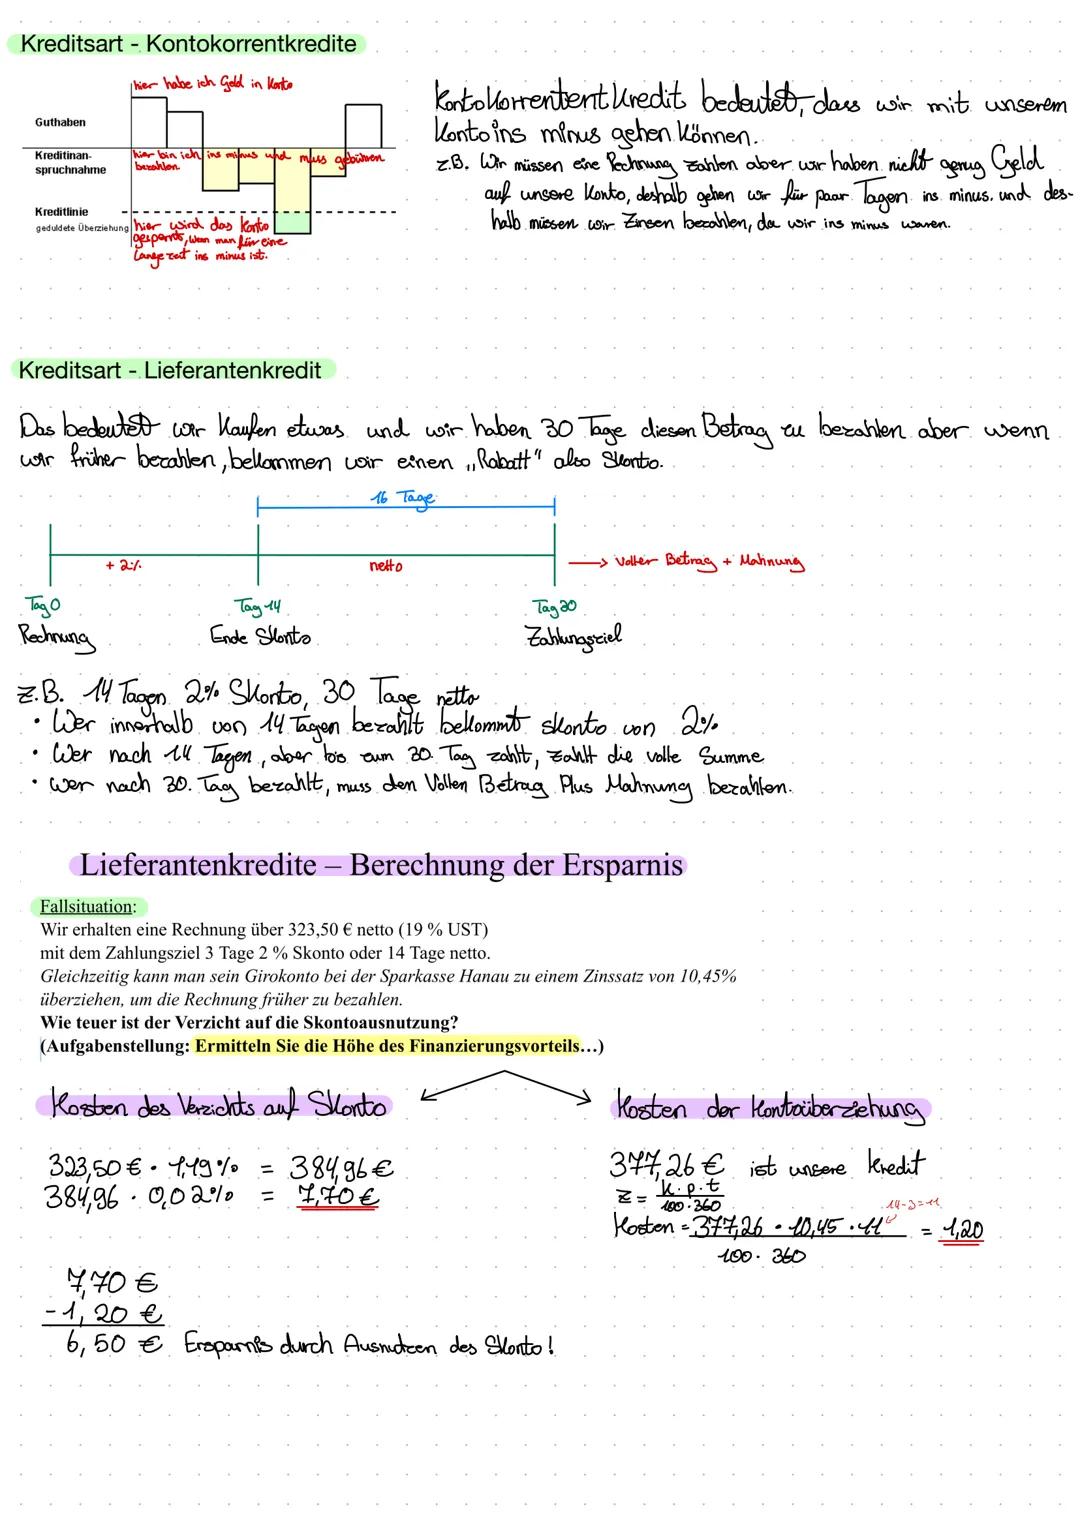 Kreditsart - Kontokorrentkredite
hier habe ich Geld in Konto
Guthaben
Kreditinan-
spruchnahme
hier bin ich ins minus und muss gebühren
bezahlen
Kreditlinie
geduldete Überziehung
hier wird das Konto
gesperrt, wenn man für eine
lange zeit ins minus ist.
Kontokorrentent kredit bedeutet, dass wir mit unserem
Konto ins minus gehen können.
z.B. Wir müssen eine Rechnung zahlen aber wir haben nicht genug Geld
auf unsere Konto, deshalb gehen wir für paar Tagen ins minus. und des-
halb müssen wir Zinsen bezahlen, da wir ins minus waren.
Kreditsart - Lieferantenkredit
Das bedeutet wir kaufen etwas und wir haben 30 Tage diesen Betrag zu bezahlen aber wenn
wir früher bezahlen, bekommen wir einen „Rabatt" also Skonto.
16 Tage
+ 2% netto → Voller Betrag + Mahnung
Tag 0 Tag 14 Tag 30
Rechnung Ende Skonto Zahlungsziel
z.B. 14 Tagen 2% Skonto, 30 Tage netto
• Wer innerhalb von 14 Tagen bezahlt bekommt skonto von 2%
• Wer nach 14 Tagen, aber bis zum 30. Tag zahlt, zahlt die volle Summe
• wer nach 30. Tag bezahlt, muss den Vollen Betrag Plus Mahnung bezahlen.
Lieferantenkredite – Berechnung der Ersparnis
Fallsituation:
Wir erhalten eine Rechnung über 323,50 € netto (19 % UST)
mit dem Zahlungsziel 3 Tage 2 % Skonto oder 14 Tage netto.
Gleichzeitig kann man sein Girokonto bei der Sparkasse Hanau zu einem Zinssatz von 10,45%
überziehen, um die Rechnung früher zu bezahlen.
Wie teuer ist der Verzicht auf die Skontoausnutzung?
(Aufgabenstellung: Ermitteln Sie die Höhe des Finanzierungsvorteils…)
Kosten des Verzichts auf Skonto
323,50 € · 1,19% = 384,96 €
384,96 · 0,02% = 7,70 €
Kosten der Kontoüberziehung
377,26 € ist unsere kredit
Z = K·p·t
100·360
14-3=11
Kosten = 377,26 · 10,45 · 11 = 1,20
100 · 360
7,70 €
-1,20 €
6,50 € Ersparnis durch Ausnutzen des Skonto!